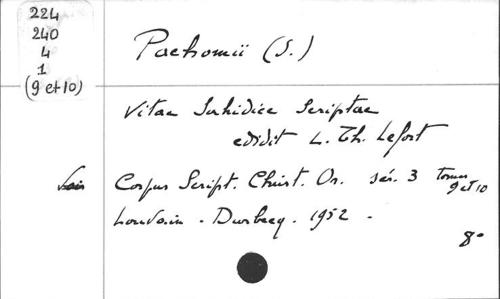 224
240
4
1
(9 et 10)
Pachomii (S.)
Vitae Sahidice Scriptae
edidit L. Th. Lefort
Voir Corpus Script. Christ. Or. sér. 3 Tomus 9 et 10
Louvain - Durbecq. 1952 -
8°